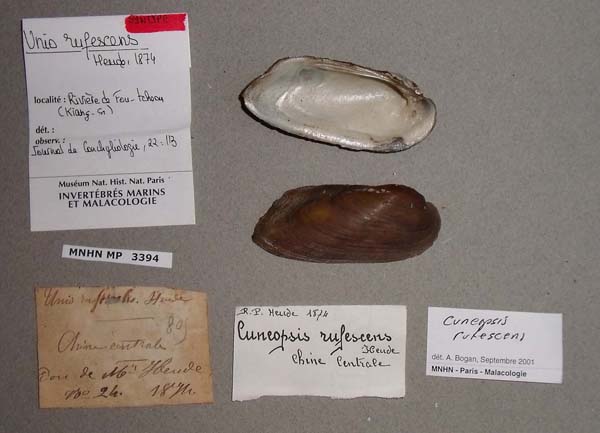 SYNTYPE
Unio rufescens
Heude, 1874
localité : Rivière de Fou-tcheou
(Kiang-si)
dét. :
observ. :
Journal de Conchyliologie, 22 : 113
Muséum Nat. Hist. Nat. Paris
INVERTÉBRÉS MARINS
ET MALACOLOGIE
MNHN MP 3394
Unio Heude
Chine centrale
Don de Mr Heude
No 24. 1874.
R.P. Heude 1874
Cuneopsis rufescens
Heude
Chine Centrale
Cuneopsis
rufescens
dét. A. Bogan, Septembre 2001
MNHN - Paris - Malacologie